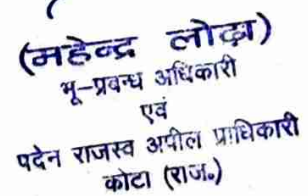 (महेन्द्र लोढ़ा)
भू-प्रबन्ध अधिकारी
एवं
पदेन राजस्व अपील प्राधिकारी
कोटा (राज॰)